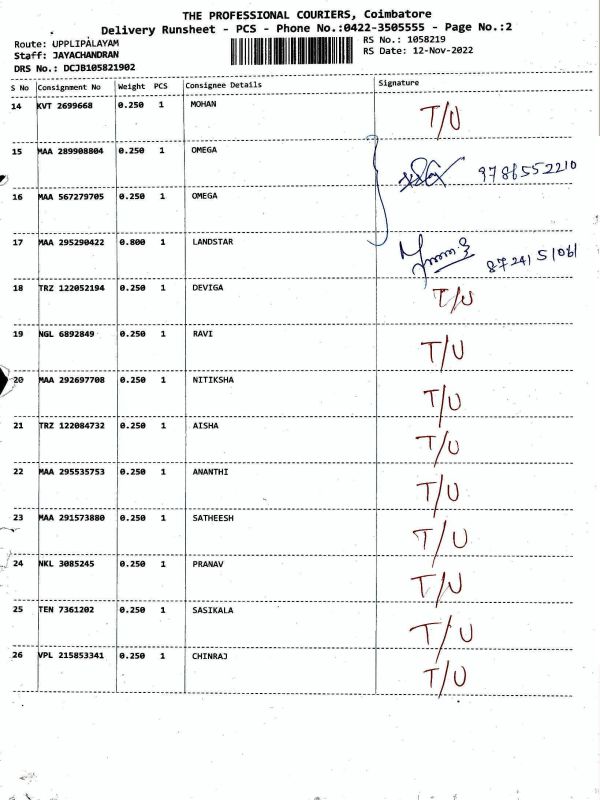 THE PROFESSIONAL COURIERS, Coimbatore
Delivery Runsheet - PCS - Phone No.:0422-3505555 - Page No.:2
Route: UPPLIPALAYAM RS No.: 1058219
Staff: JAYACHANDRAN RS Date: 12-Nov-2022
DRS No.: DCJB105821902
S No Consignment No Weight PCS Consignee Details Signature
14 KVT 2699668 0.250 1 MOHAN T/U
15 MAA 289908804 0.250 1 OMEGA 9786552210
16 MAA 567279705 0.250 1 OMEGA
17 MAA 295290422 0.800 1 LANDSTAR 8724151061
18 TRZ 122052194 0.250 1 DEVIGA T/U
19 NGL 6892849 0.250 1 RAVI T/U
20 MAA 292697708 0.250 1 NITIKSHA T/U
21 TRZ 122084732 0.250 1 AISHA T/U
22 MAA 295535753 0.250 1 ANANTHI T/U
23 MAA 291573880 0.250 1 SATHEESH T/U
24 NKL 3085245 0.250 1 PRANAV T/U
25 TEN 7361202 0.250 1 SASIKALA T/U
26 VPL 215853341 0.250 1 CHINRAJ T/U